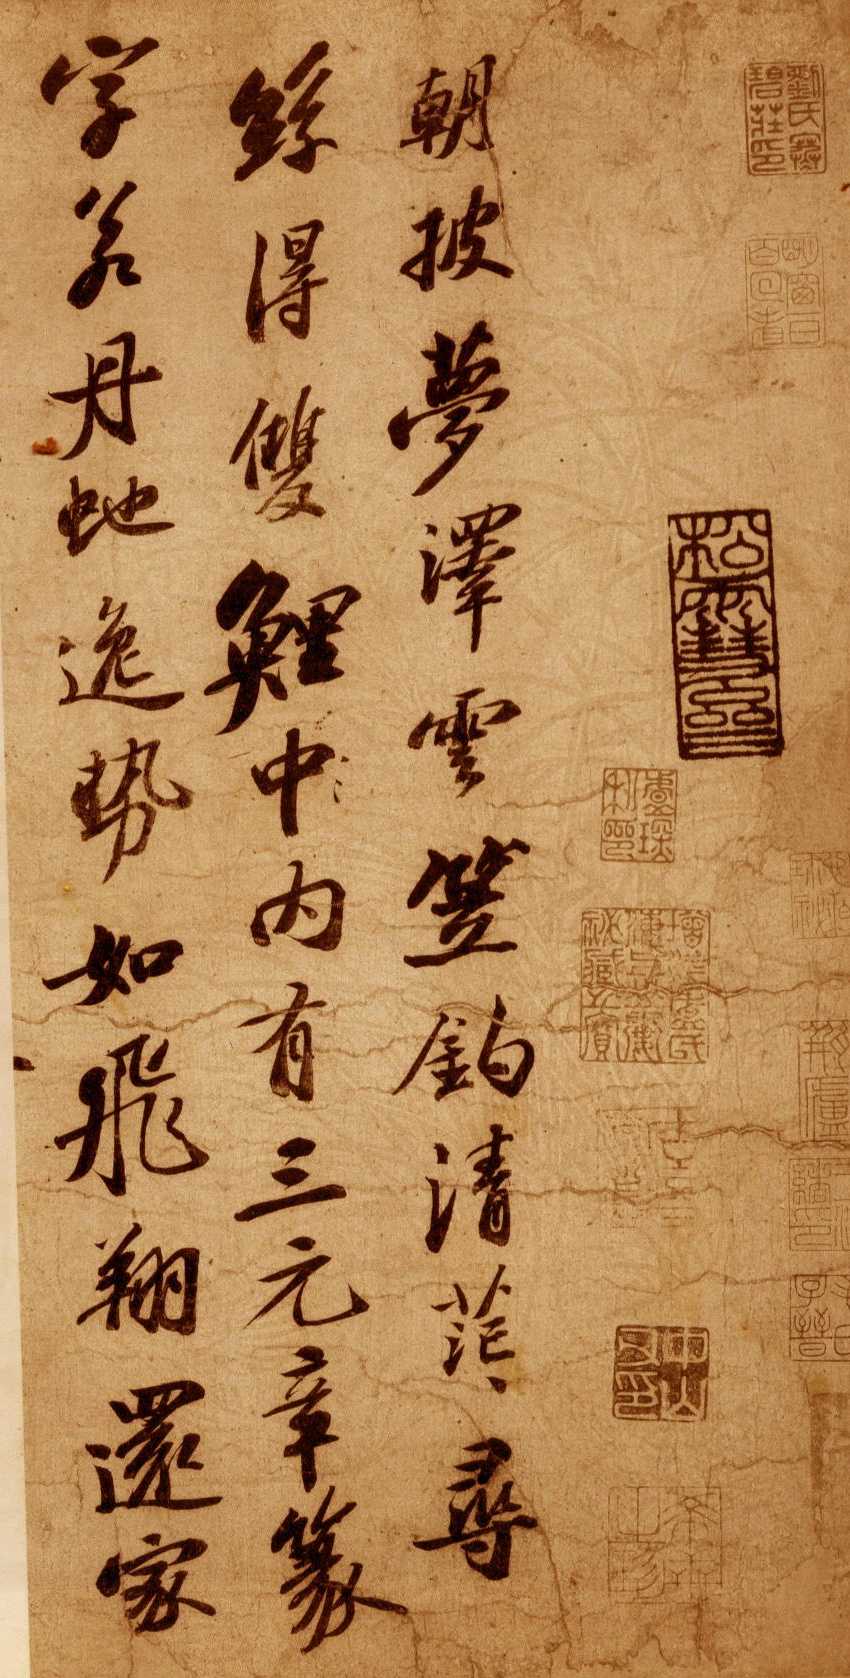 朝披夢澤雲笠釣清茫〻尋
絲得雙鯉中〻內有三元章篆
字若丹虵逸勢如飛翔還家